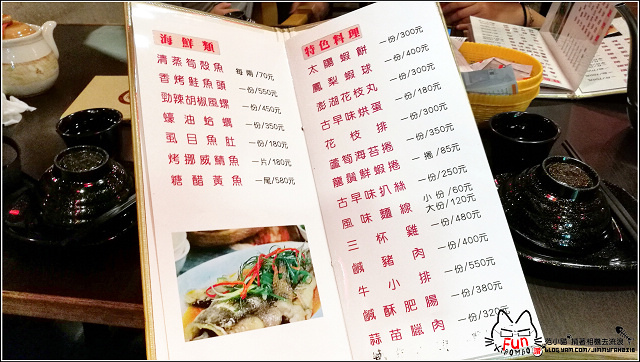 海鮮類
清蒸筍殼魚 每兩/70元
香烤鮭魚頭 一份/550元
勁辣胡椒風螺 一份/450元
蠔油蛤蠣 一份/350元
虱目魚肚 一份/180元
烤挪威鯖魚 一片/180元
糖醋黃魚 一尾/580元
特色料理
太陽蝦餅 一份/300元
鳳梨蝦球 一份/400元
澎湖花枝丸 一份/300元
古早味烘蛋 一份/180元
花枝排 一份/300元
蘆筍海苔捲 一份/350元
龍鬚鮮蝦捲 一捲/85元
古早味扒絲 一份/250元
風味麵線 小份/60元
大份/120元
三杯雞 一份/480元
鹹豬肉 一份/400元
牛小排 一份/550元
鹹酥肥腸 一份/380元
蒜苗臘肉 一份/320元
Fun